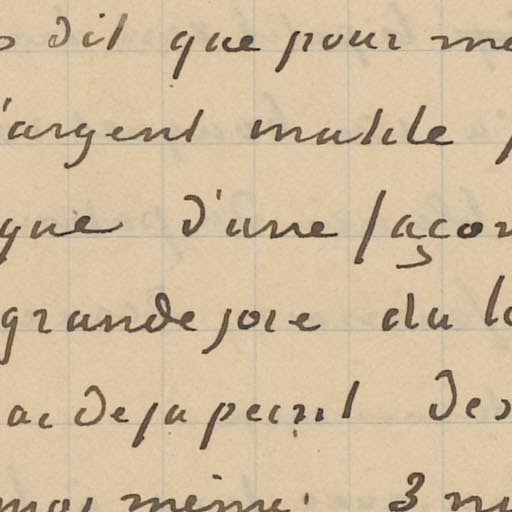 dit que pour me
l'argent inutile
que d'une façon
grande joie du
ai deja peint des
moi même. 3